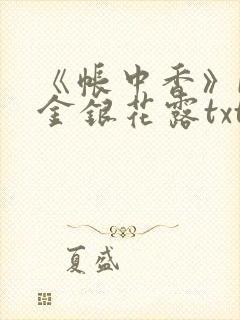 《帐中香》
金银花露txt
夏盛